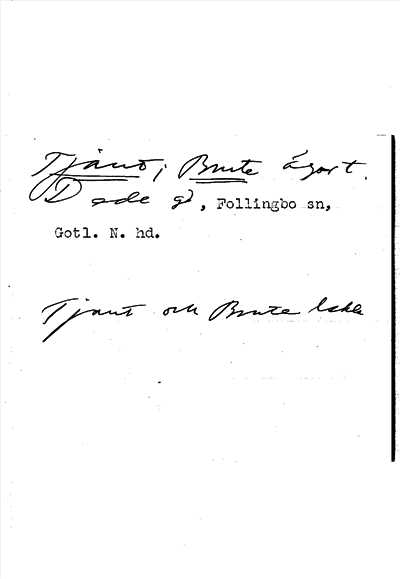 Tjaut, i Brute ägort.
Dede gd, Follingbo sn,
Gotl. N. hd.
Tjaut och Brute